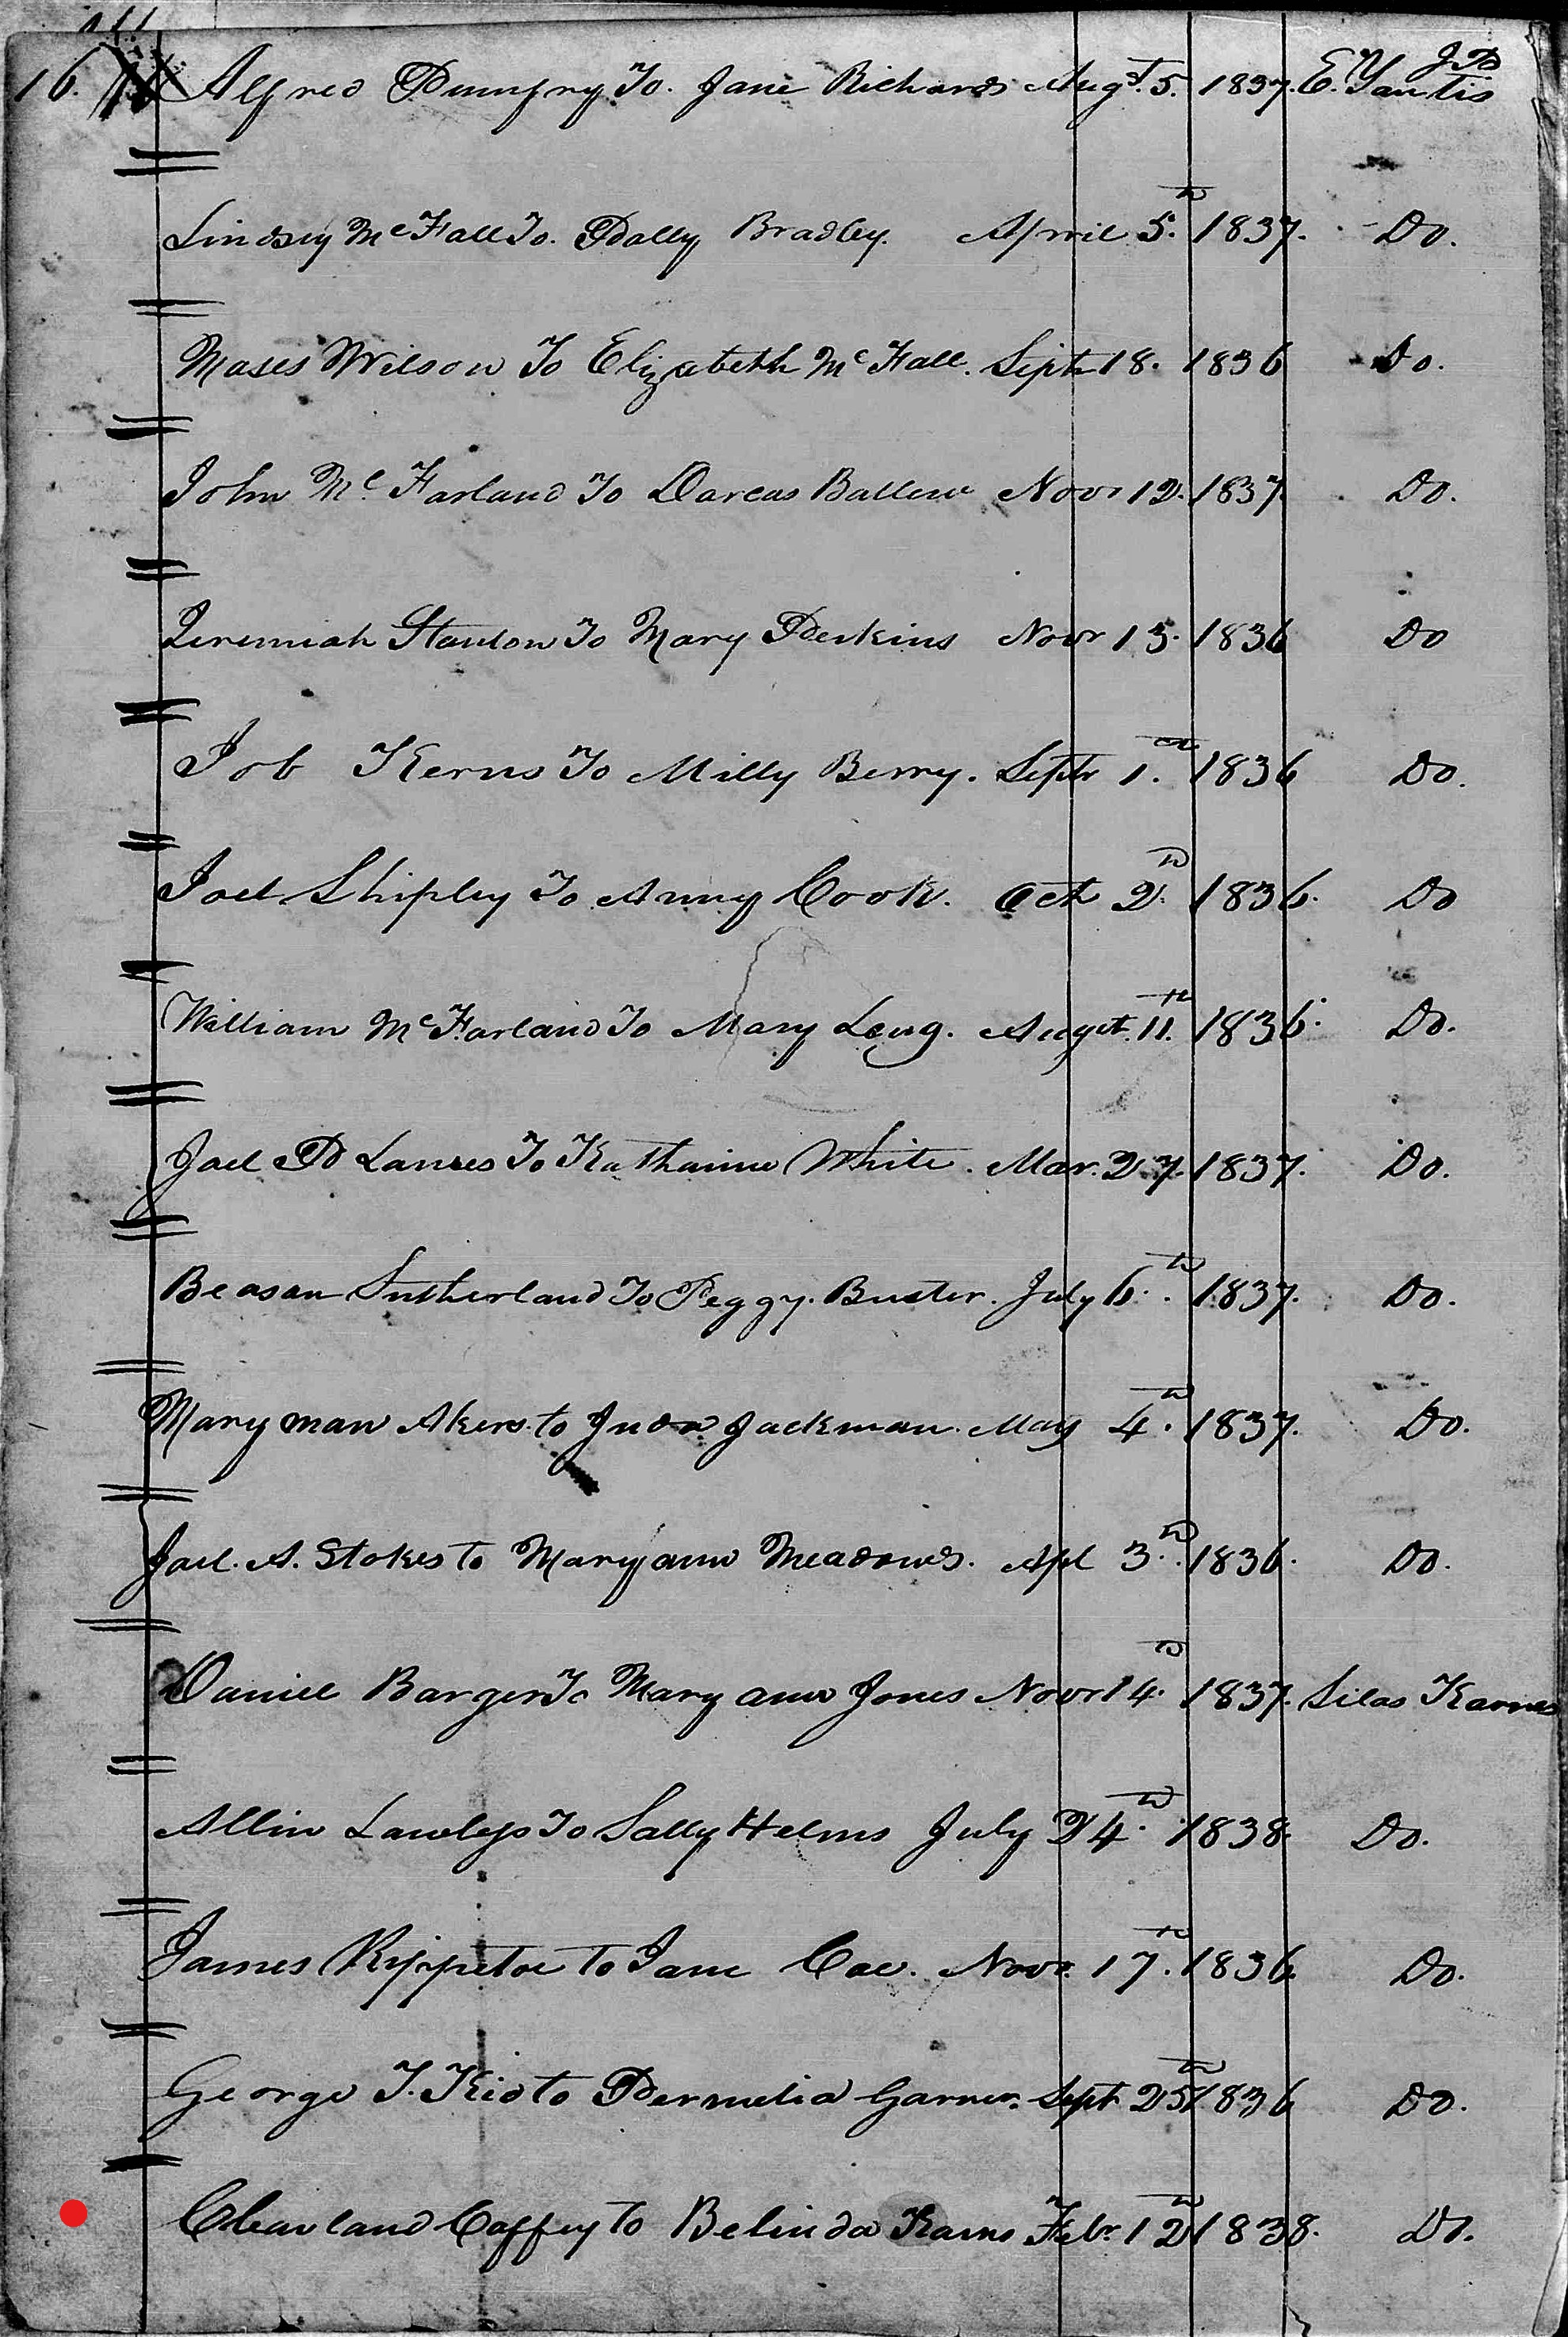 16. Alfred Pumfry To. Jane Richards Augt. 5. 1837. E. Yantis JP
Lindsey McFall To. Polly Bradley. April 5.th 1837. Do.
Moses Wilson To Elizabeth McFall. Sept 18. 1836 Do.
John Mc Farland To Darcas Ballew Novr 12. 1837. Do.
Jeremiah Stanton To Mary Perkins Novr 13. 1836 Do
Job Kerns To Milly Berry. Septr 1.st 1836 Do.
Joel Shipley To Anny Cook. Oct 2.d 1836. Do
William McFarland To Mary Long. Augst. 11.th 1836. Do.
Joel P Lanies To Katharine White. Mar. 27. 1837. Do.
Beason Sutherland To Peggy. Buster. July 6.th 1837. Do.
Mary man Akers. to Juda Jackman. May 4.th 1837. Do.
Joel. A. Stokes to Maryann Meadows. Apl 3.d 1836. Do.
Daniel Barger To Mary ann Jones Novr 14.th 1837. Silas Karnes
Allin Lawleys To Sally Helms July 24.th 1838. Do.
James Rippetoe to Jane Coe. Novr. 17.th 1836. Do.
George T. Kid to Permelia Garner. Sept. 25th 1836 Do.
Cleavland Coffey to Belinda Karns Febr. 12th 1838. Do.